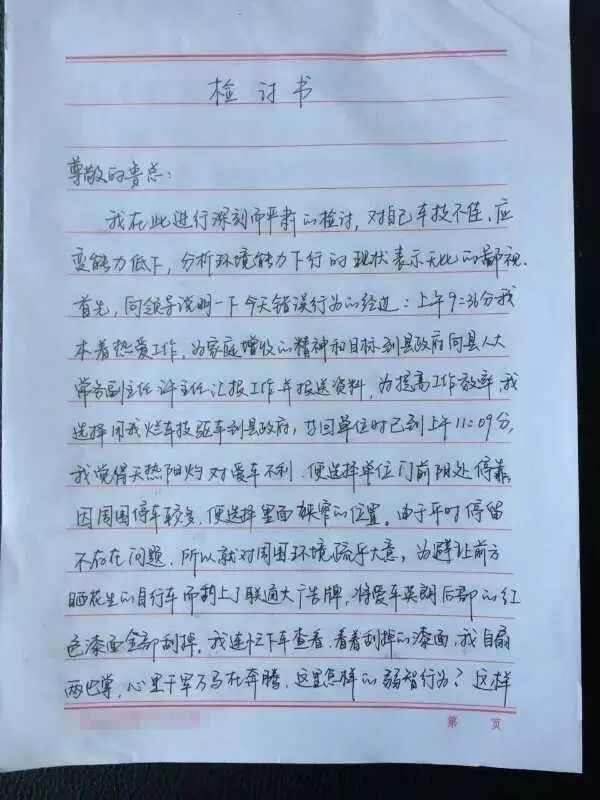 检讨书
尊敬的鲁总：
我在此进行深刻而严肃的检讨，对自己车技不佳、应
变能力低下，分析环境能力下行的现状表示无比的鄙视.
首先，向领导说明一下今天错误行为的经过：上午9:36分我
本着热爱工作，为家庭增收的精神和目标到县政府向县人大
常务副主任许主任汇报工作并报送资料，为提高工作效率，我
选择用我烂车技驱车到县政府，片回单位时已到上午11:09分，
我觉得天热阳灼对爱车不利，便选择单位门前阴处停靠，
因周围停车较多，便选择里面狭窄的位置。由于平时停留
不存在问题，所以就对周围环境疏乎大意，为避让前方
晒花生的自行车而剐上了联通大广告牌，将爱车英朗后部的红
色漆面全部刮掉。我连忙下车查看，看着刮掉的漆面，我自扇
两巴掌，心里千军万马在奔腾，这是怎样的弱智行为？这样
第 页